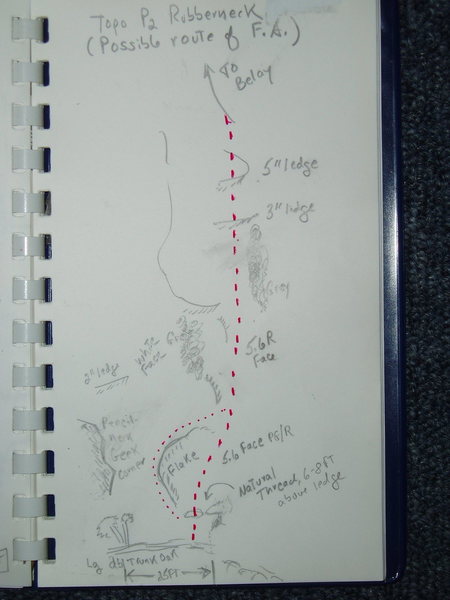 Topo P2 Rubberneck
(Possible route of F.A.)
To
Belay
5" ledge
3" ledge
Gray
5.6R
Face
White
Face
2" ledge
Pencil
neck
Geek
Corner
Flake
5.6 Face PG/R
Natural
Thread, 6-8FT
above ledge
Lg dbl Trunk Oak
25FT